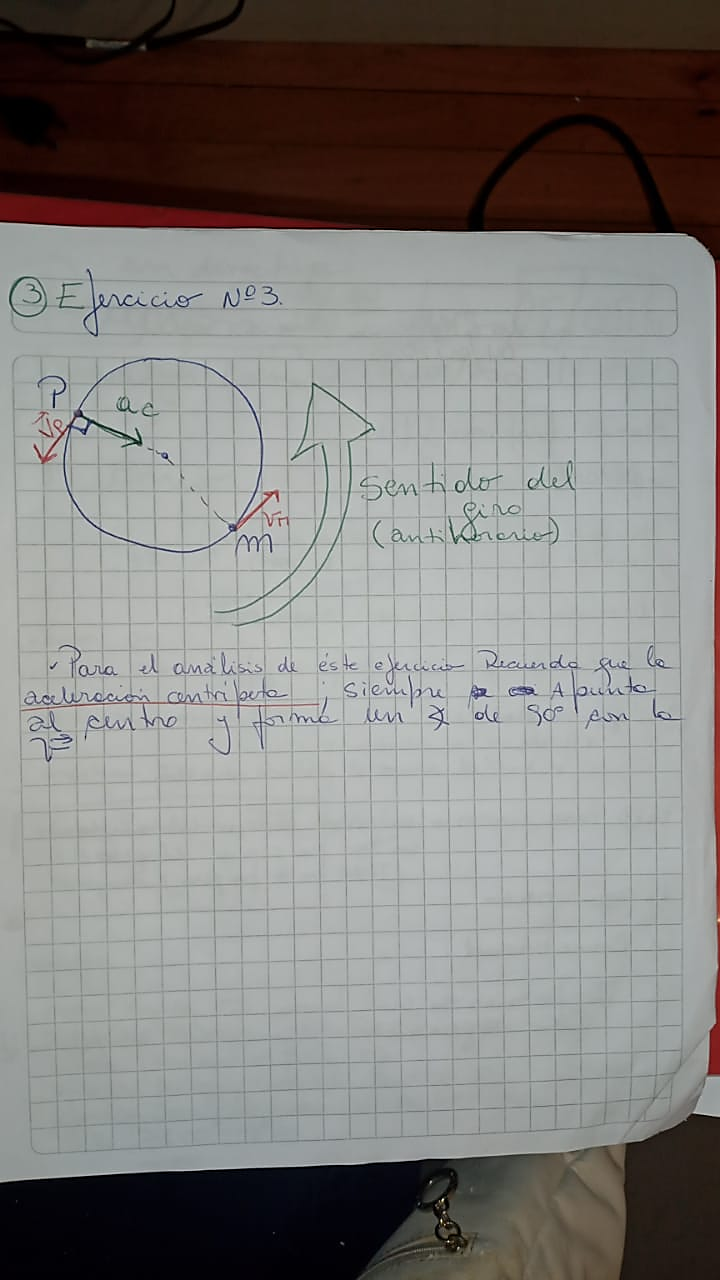 ③ Ejercicio Nº3.
P
ac
Vp
Vm
m
Sentido del
giro
(antihorario)
Para el análisis de éste ejercicio Recuerdo que la
aceleración centripeta ; siempre Apunta
al centro y forma un ∡ de 90° con la
V